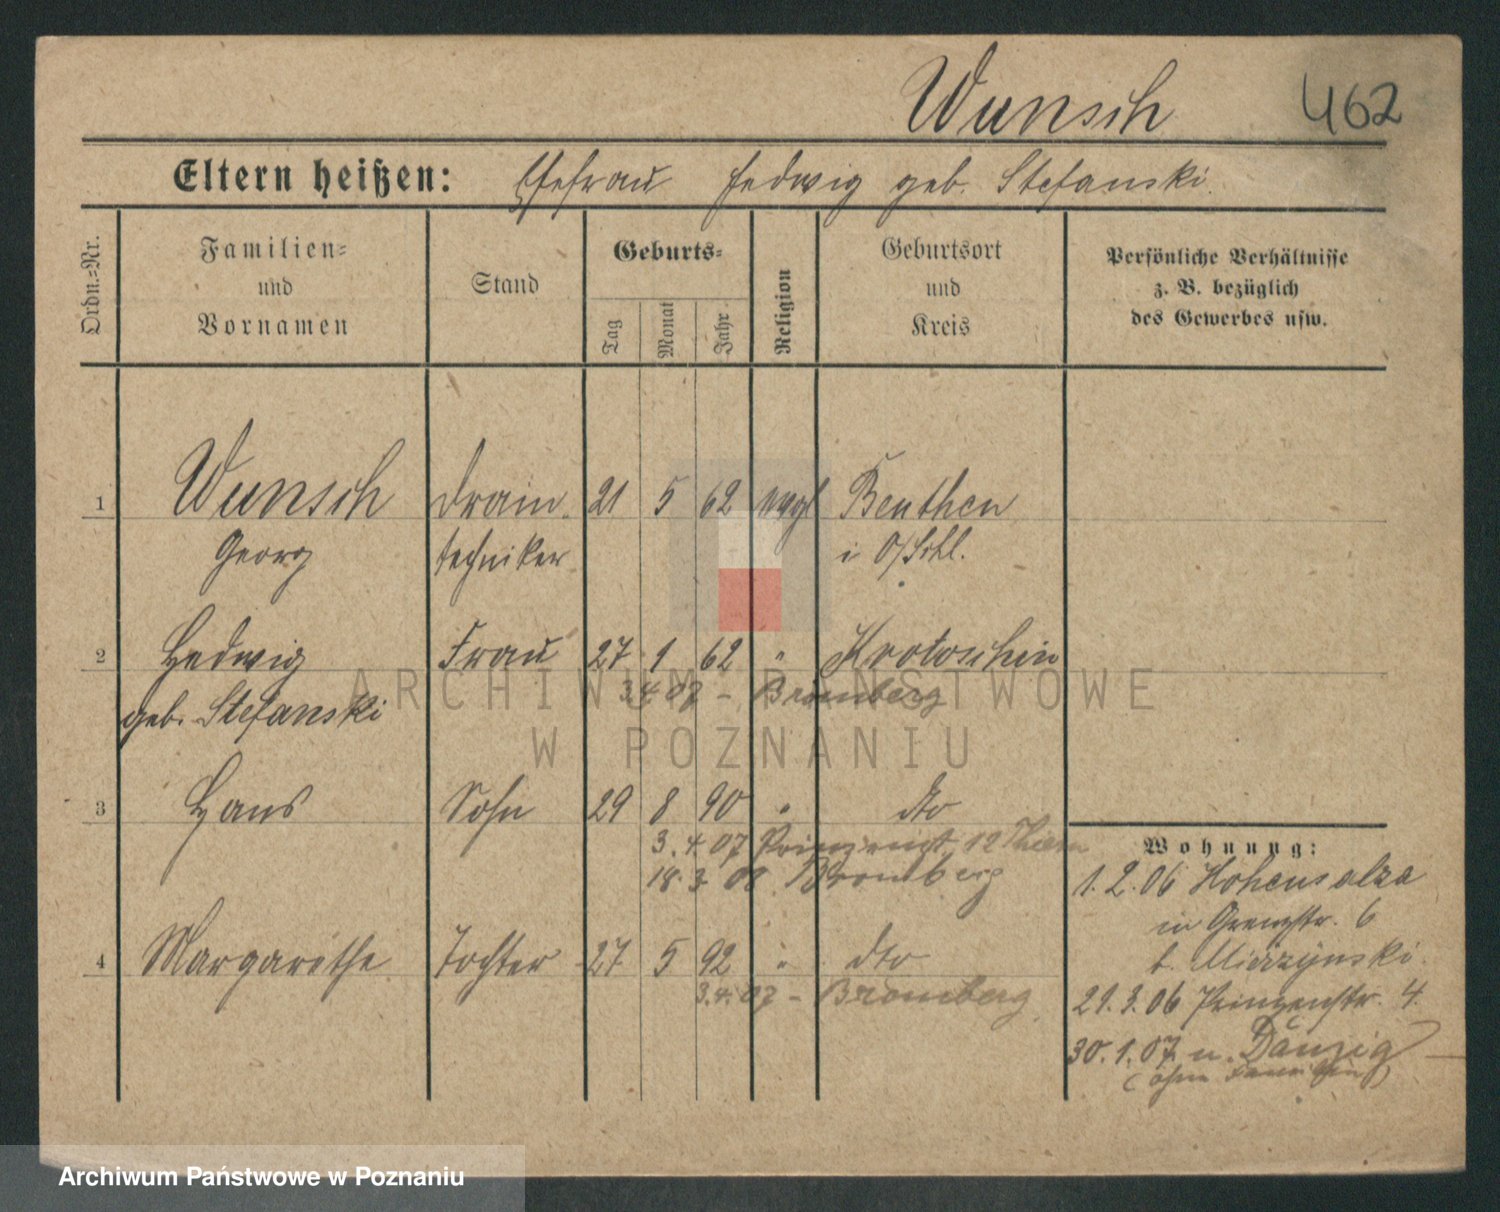 Wunsch 462
Eltern heißen: Ehefrau Hedwig geb. Stefanski.
Ordn.=Nr.
Familien=
und
Vornamen
Stand
Geburts=
Tag
Monat
Jahr
Religion
Geburtsort
und
Kreis
Persönliche Verhältnisse
z. B. bezüglich
des Gewerbes usw.
1 Wunsch Drain- 21 5 62 evgl Beuthen
Georg techniker i O/Schl.
2 Hedwig Frau 27 1 62 " Krotoschin
3.4.07 - Bromberg
geb. Stefanski
3 Hans Sohn 29 8 90 " dto
3.4.07 12
18.3.08 Bromberg
4 Margarethe Tochter 27 5 92 " dto
3.4.07 - Bromberg
Wohnung:
1.2.06 Hohensalza
in Grenzstr. 6
b. Mierzynski.
21.3.06 Prinzenstr. 4.
30.1.07 n. Danzig
(ohne Familie)
ARCHIWUM PAŃSTWOWE
W POZNANIU
Archiwum Państwowe w Poznaniu